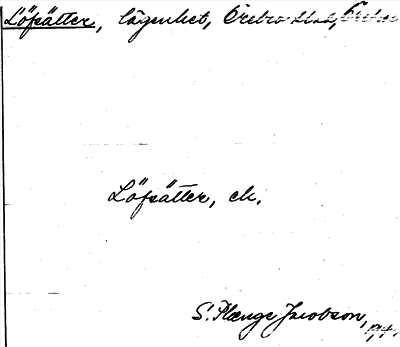 Löfsätter, lägenhet, Örebro stad, Örebro
Löfsätter, ek.
S. Plænge Jacobson,